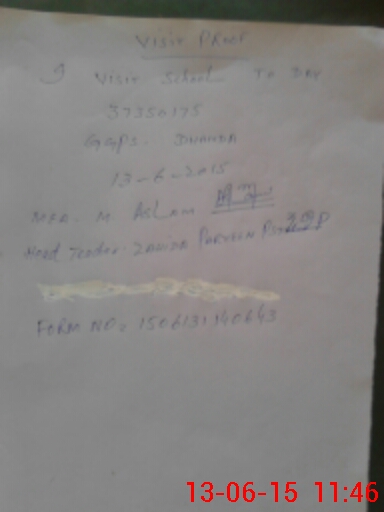 Visit Proof
I Visit School To Day
37350175
GGPS. DHANDA
13-6-2015
MEA. M. ASLAM
Head Teacher ZAHIDA PARVEEN
FORM NO: 1506131140643
13-06-15 11:46